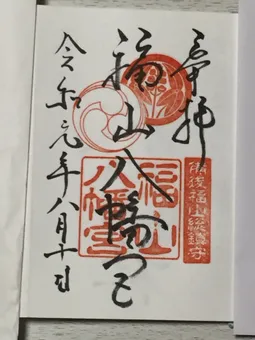 奉拝
備後福山総鎮守
福山八幡宮
福山
八幡宮
令和元年八月十一日